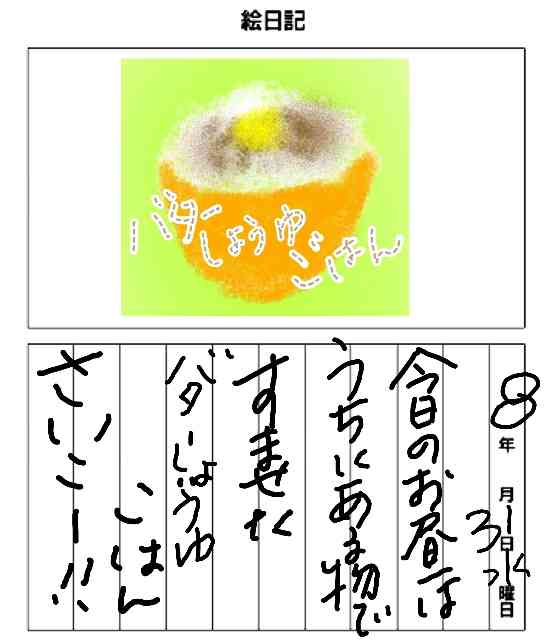 絵日記
バターしょうゆ
ごはん
8年月31日水曜日
今日のお昼は
うちにある物で
すませた
バターしょうゆ
ごはん
さいこー!!